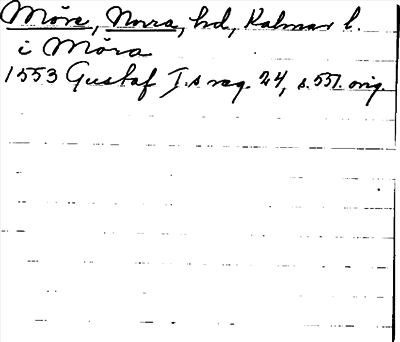 Möre, Norra, hd, Kalmar l.
i Möra
1553 Gustaf I.s reg. 24, s. 551. orig.